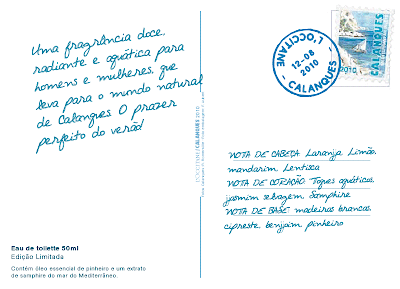 Uma fragrância doce,
radiante e aquática para
homens e mulheres, que
leva para o mundo natural
de Calanques. O prazer
perfeito do verão!
Eau de toilette 50ml
Edição Limitada
Contém óleo essencial de pinheiro e um extrato
de samphire do mar do Mediterrâneo.
CALANQUES 2010
L'OCCITANE
12-08
2010
- CALANQUES -
CALANQUES
2010
NOTA DE CABEÇA: Laranja, Limão,
mandarim, Lentisca
NOTA DE CORAÇÃO: Toques aquáticos,
jasmim selvagem, Samphire
NOTA DE BASE: madeiras brancas,
cipreste, benjoim, pinheiro